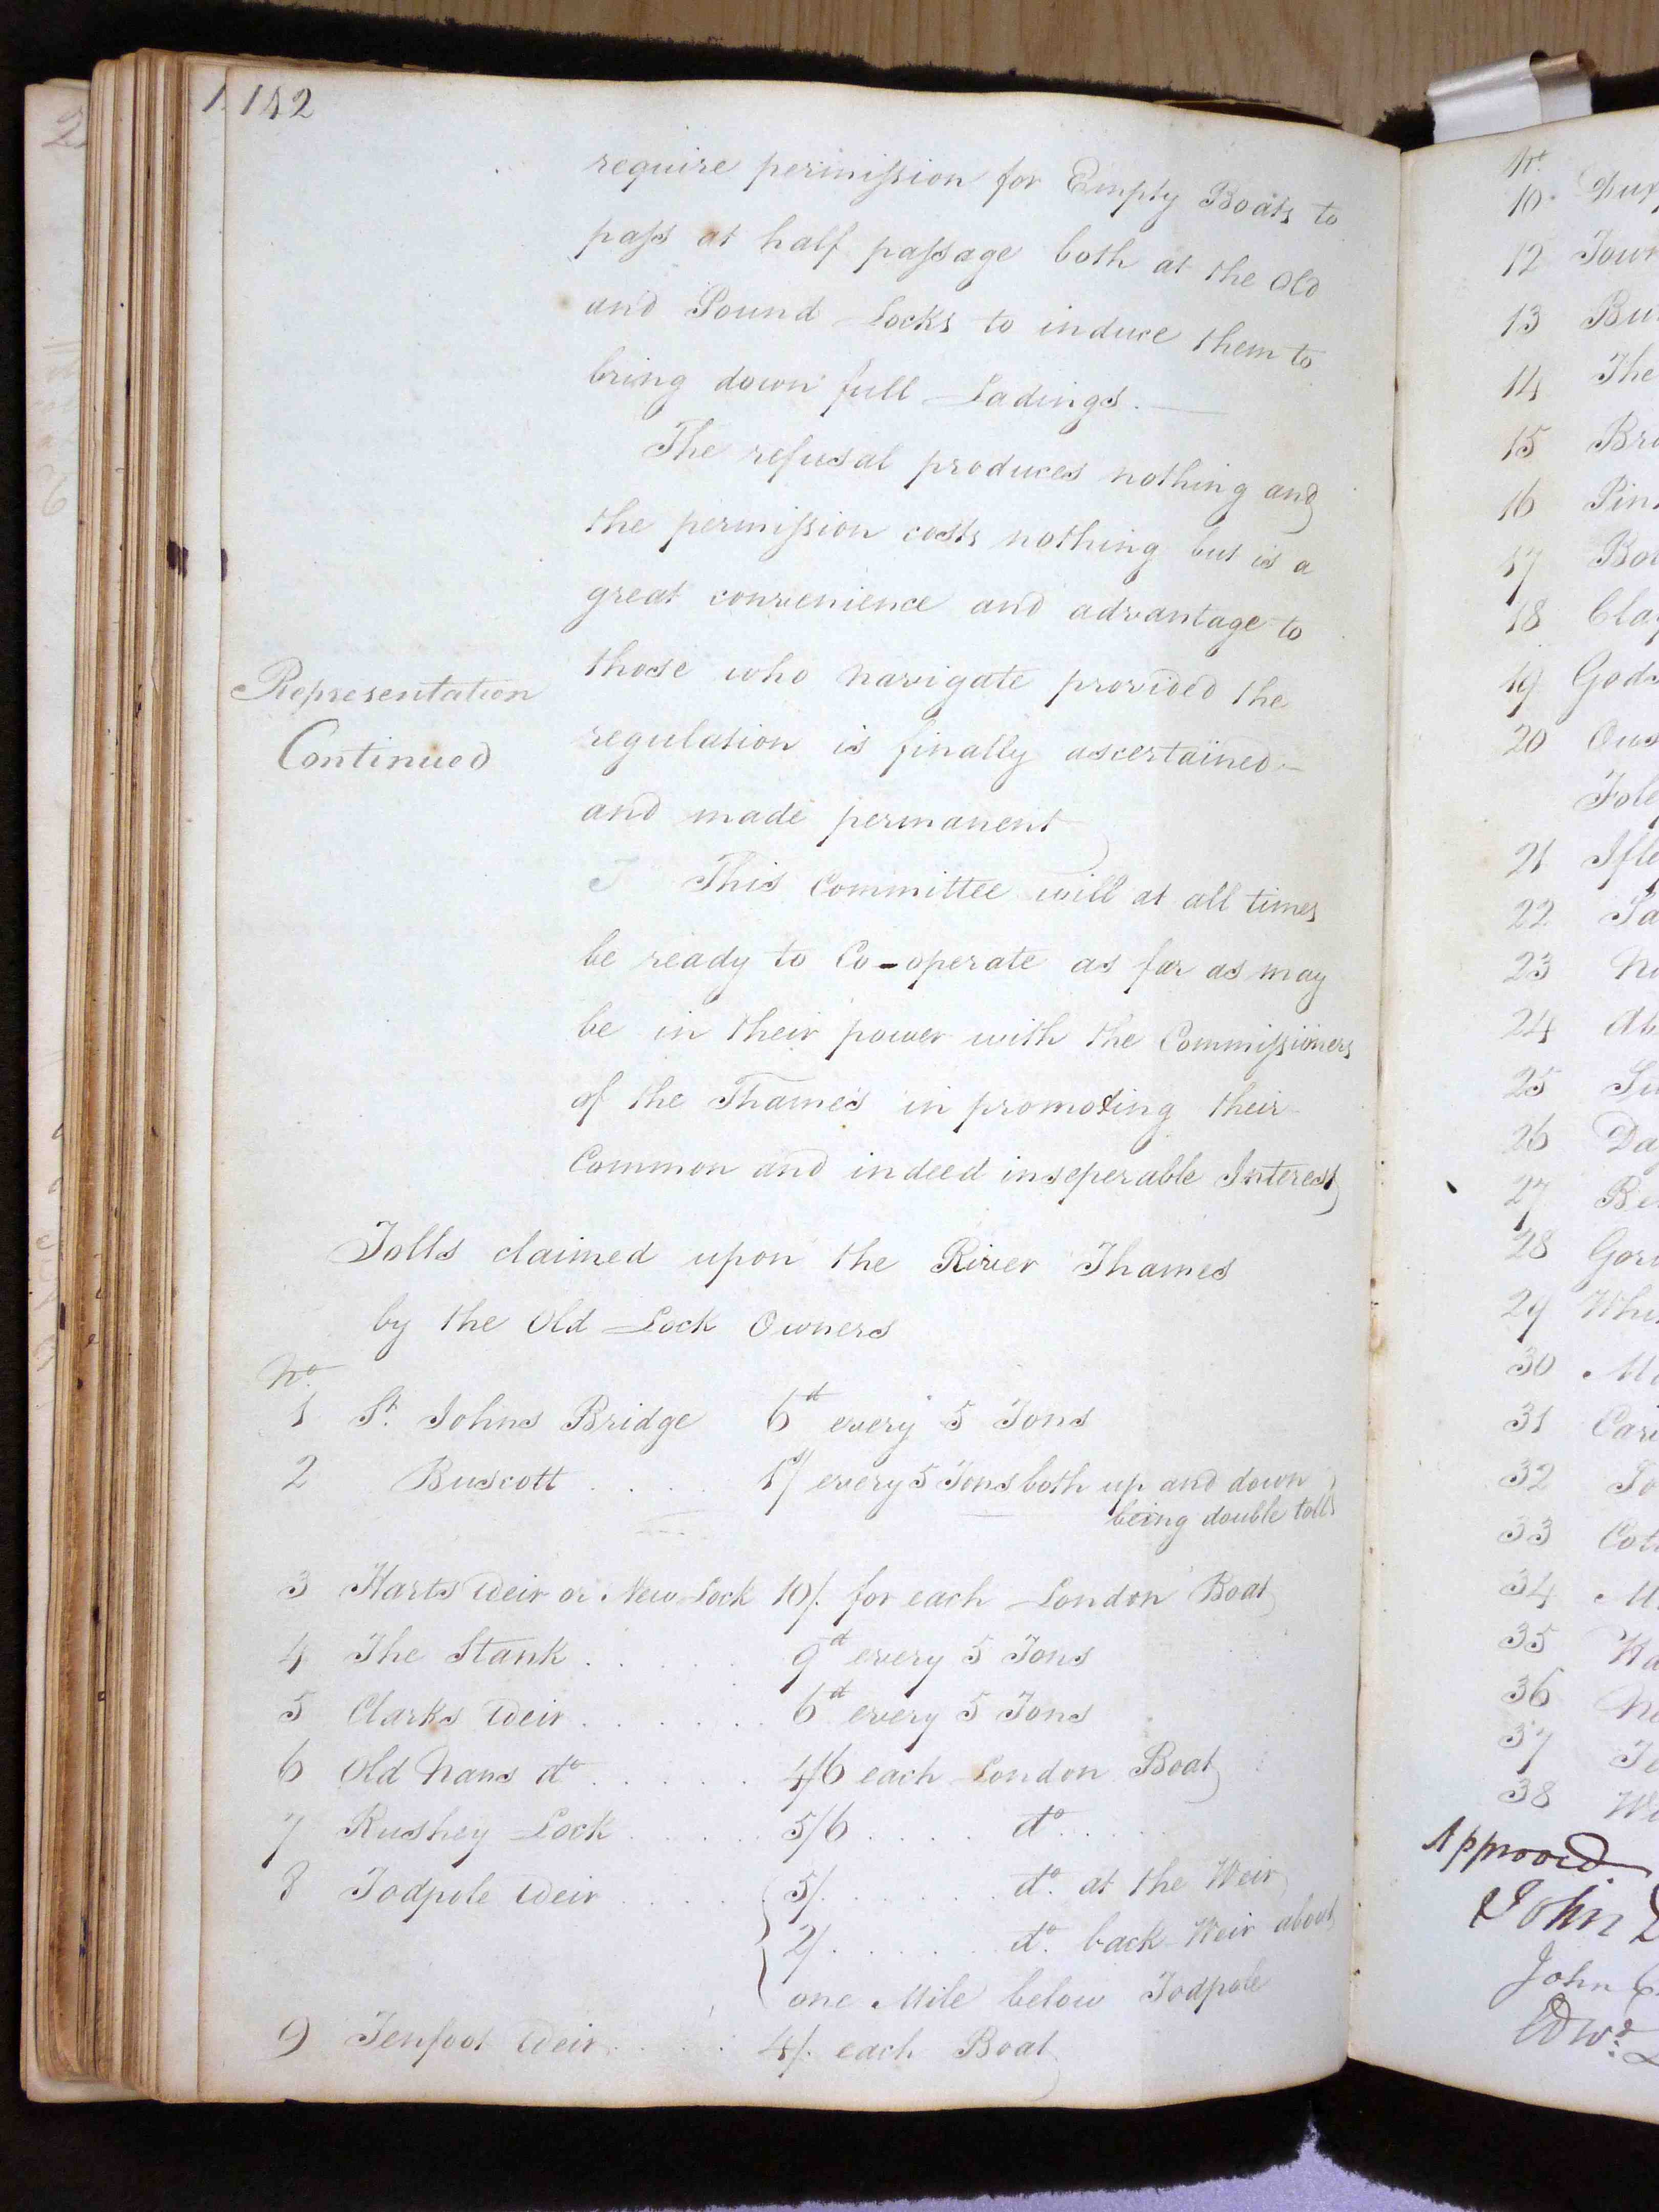 142
require permission for Empty Boats to
pass at half passage both at the Old
and Pound Locks to induce them to
bring down full Ladings.
The refusal produces nothing and
the permission costs nothing but is a
great convenience and advantage to
Representation
Continued
those who navigate provided the
regulation is finally ascertained
and made permanent
This Committee will at all times
be ready to Co-operate as far as may
be in their power with the Commissioners
of the Thames in promoting their
Common and indeed inseperable Interest
Tolls claimed upon the River Thames
by the Old Lock Owners
No.
1 St. Johns Bridge 6d every 5 Tons
2 Buscott . . . . 1s/ every 5 Tons both up and down
being double tolls
3 Harts Weir or New Lock 10/. for each London Boat
4 The Stank . . . . . 9d every 5 Tons
5 Clarks Weir . . . . . . 6d every 5 Tons
6 Old Nans do . . . . . . 4/6 each London Boat
7 Rushey Lock . . . . . 5/6 . . . . do . . . .
8 Todpole Weir . . . . 5/. . . . . . do. at the Weir
2/. . . . . . do. back Weir about
one Mile below Todpole
9 Tenfoot Weir . . . . 4/. each Boat
No.
10
12
13
14 The
15
16
17
18
19
20
21
22
23
24
25
26
27
28
29
30
31
32
33
34
35
36
37
38
Approved
John
John
Edwd.